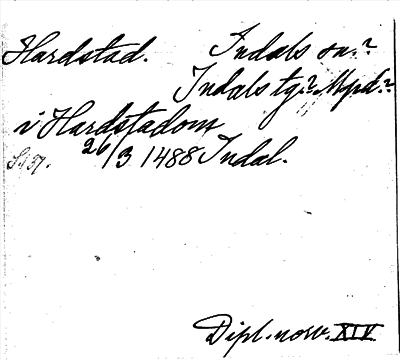 Hardstad. Indals sn.?
Indals tg.? Mpd.?
i Hardstadom
S. 137. 26/3 1488 Indal.
Dipl. norv. XIV